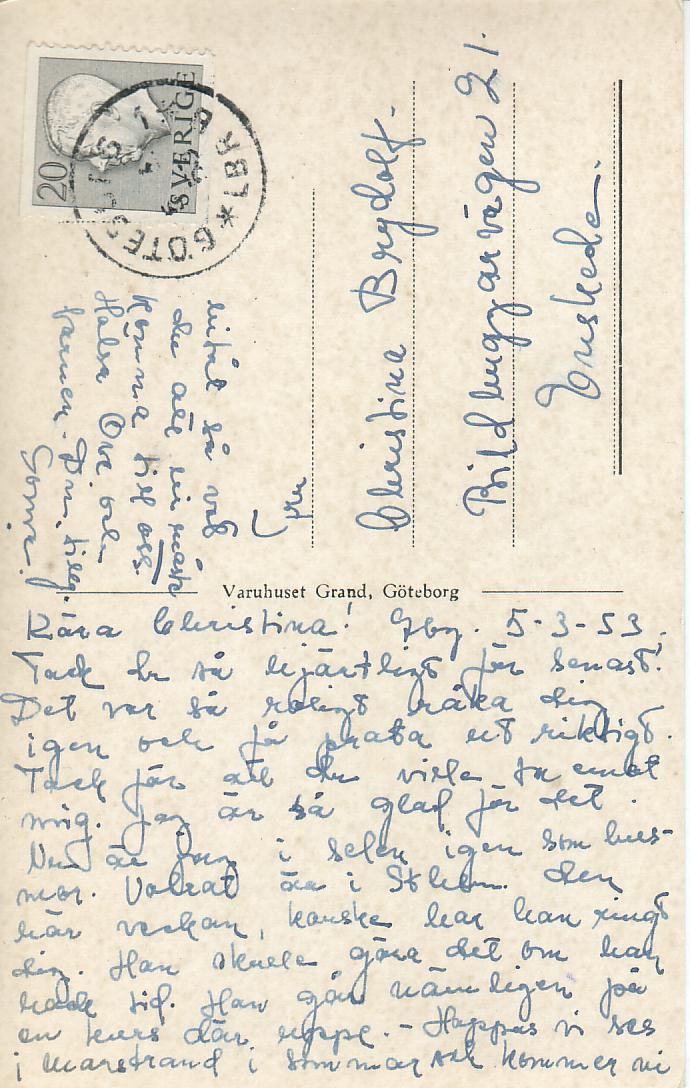 20
SVERIGE
GÖTEBORG
LBR
Fru
Christina Brydolf.
Bildhuggarvägen 21.
Enskede.
Varuhuset Grand, Göteborg
Kära Christina! Gbg. 5-3-53.
Tack du så hjärtligt för senast!
Det var så roligt råka dig
igen och få prata ut riktigt.
Tack för att du ville ta emot
mig. Jag är så glad för det.
Nu är jag i selen igen som hus-
mor. Valrat är i Sthlm. den
här veckan, kanske har han ringt
dig. Han skulle göra det om han
hade tid. Han går nämligen på
en kurs där uppe. - Hoppas vi ses
i Marstrand i sommar och kommer vi
inåt så vet
du att ni måste
komma till oss.
Hälsa Ove och
barnen. Din tillg.